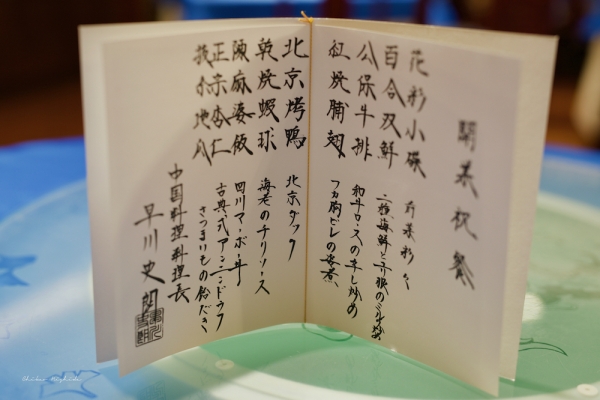 開業祝餐
花彩小碟 前菜彩々
百合双鮮 二種海鮮と百合根のミルク炒め
公保牛排 和牛ロースの辛し炒め
紅焼脯翅 フカ胸ビレの姿煮
北京烤鴨 北京ダック
乾焼蝦球 海老のチリソース
陳麻婆飯 四川マーボー丼
正宗杏仁 古典式アンニンドウフ
拔糸地瓜 さつまいもの飴だき
中国料理料理長
早川史朗